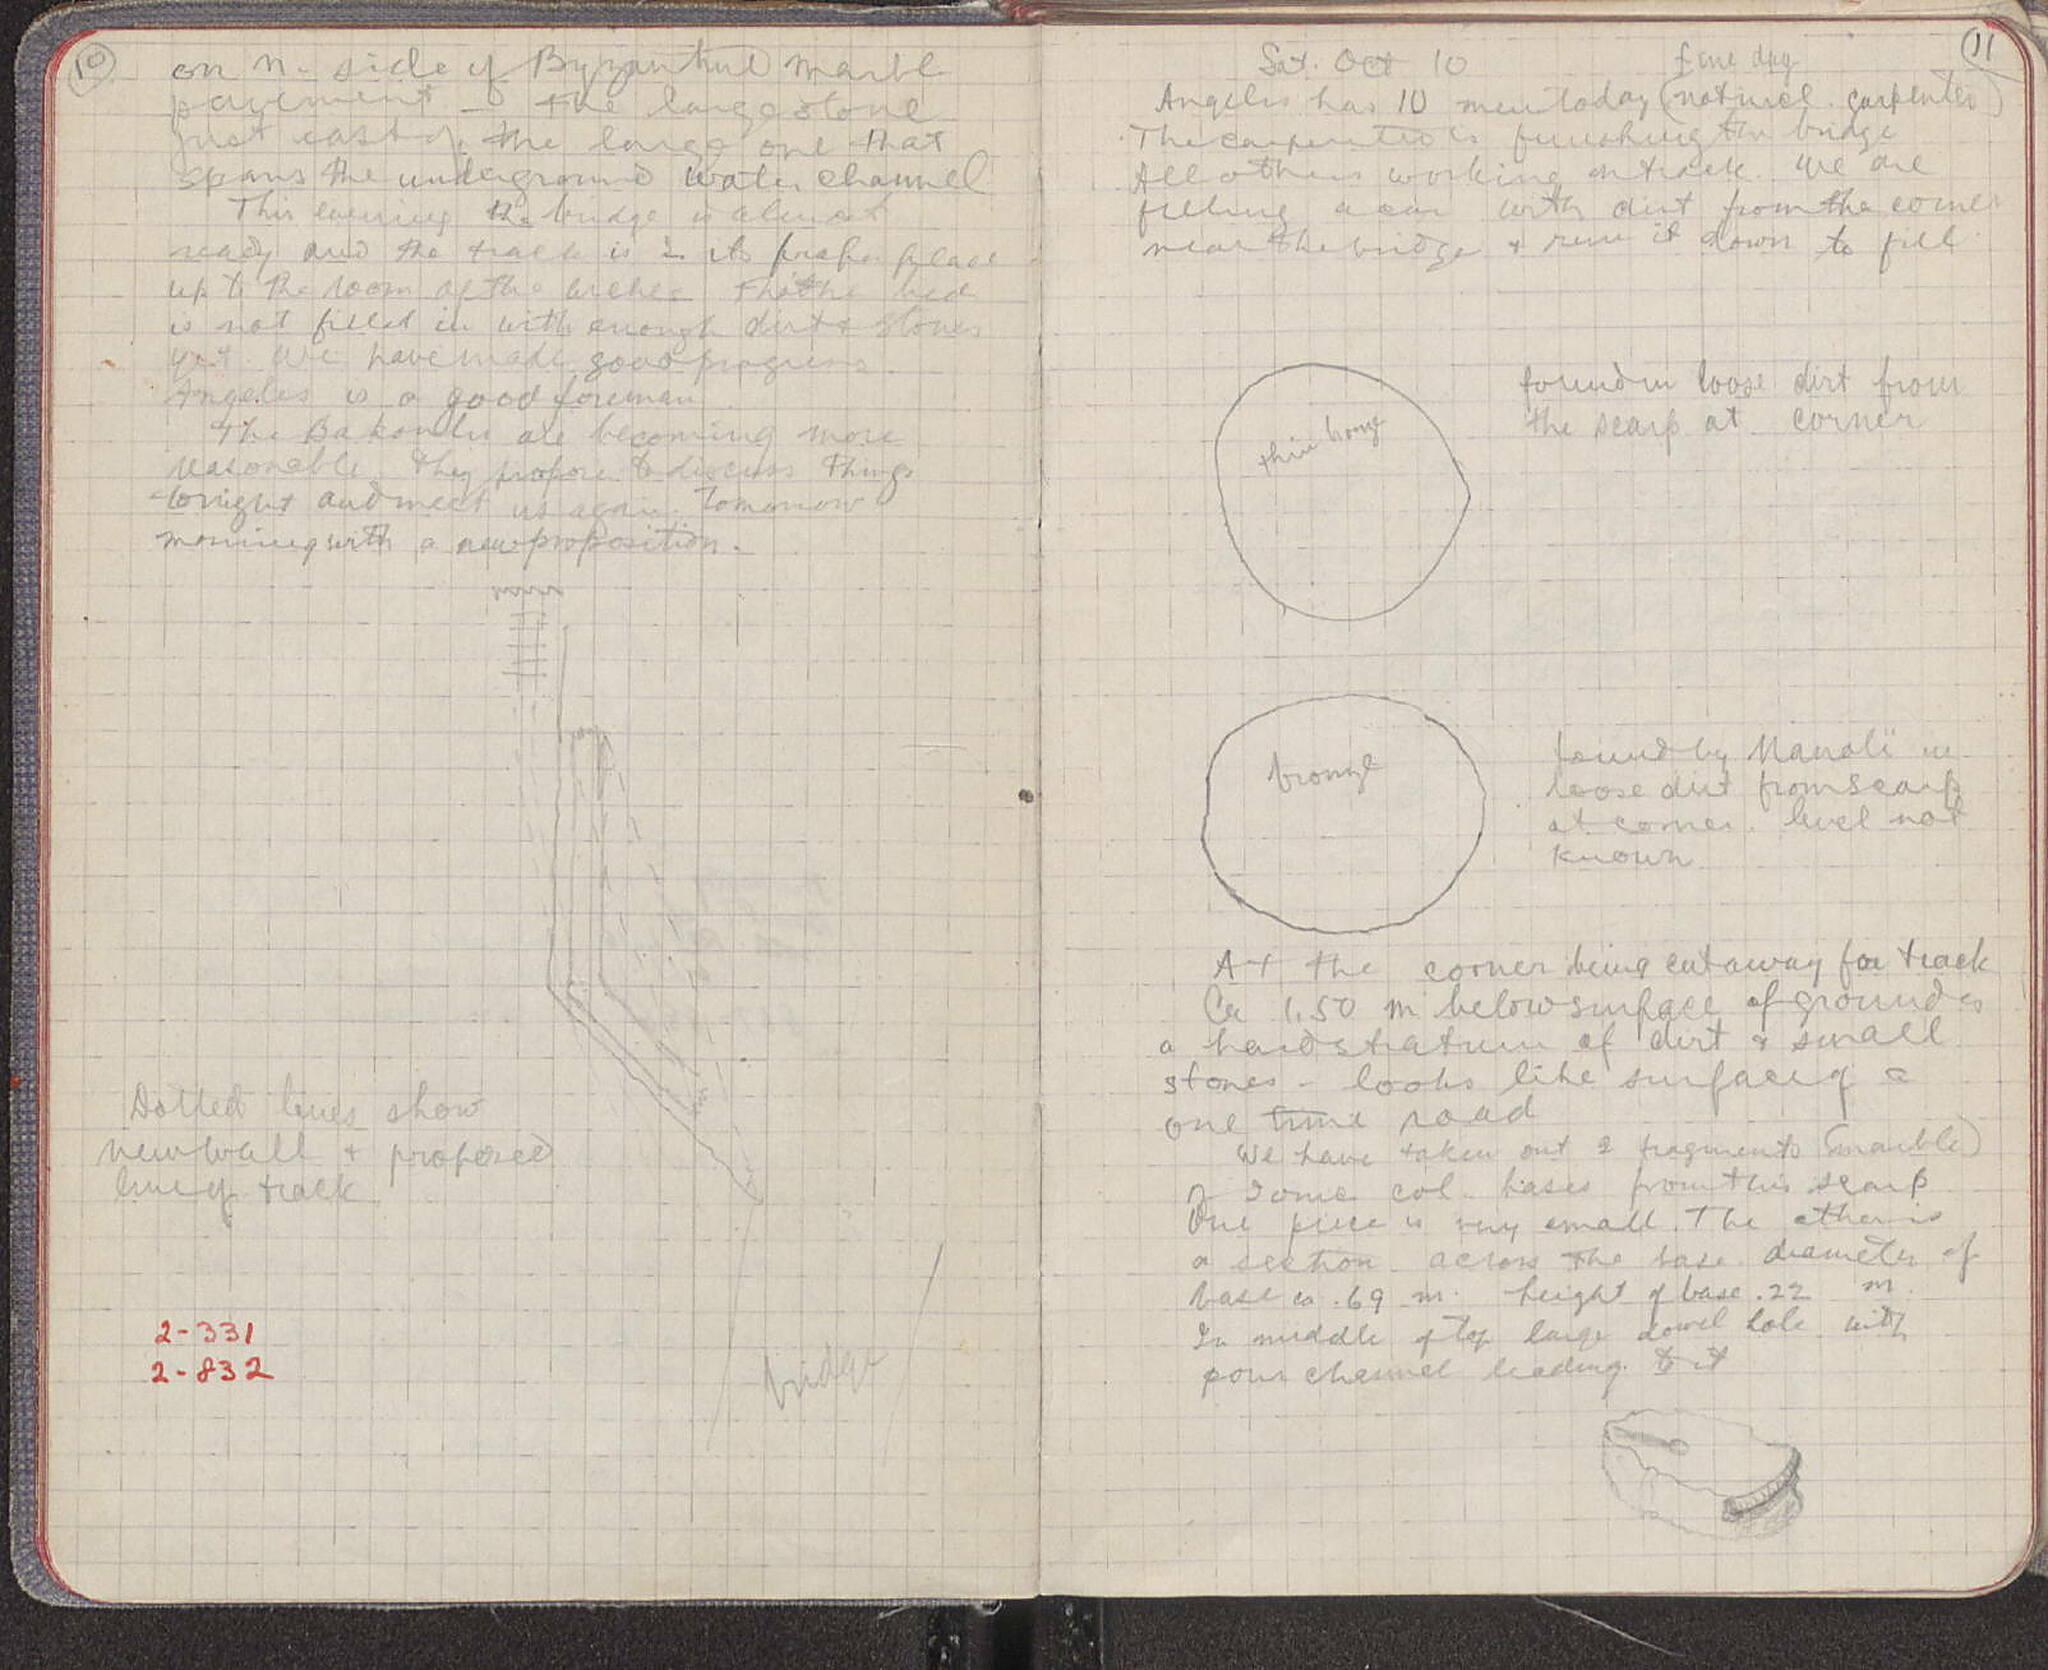 10
on N. side of Byzantine marble
pavement - the large stone
just east of the large one that
spans the underground water channel
This evening the bridge is almost
ready and the track is in its proper place
up to the room of the arches. The bed
is not filled in with enough dirt & stones
yet. We have made good progress
Angelis is a good foreman
The Bakoulis are becoming more
reasonable. They propose to discuss things
tonight and meet us again tomorrow
morning with a new proposition.
Dotted lines show
new wall & proposed
line of track
2-331
2-832
bridge
11
Sat. Oct 10 fine day
Angelis has 10 men today (not incl. carpenter)
The carpenter is finishing the bridge
All others working on track. We are
filling a car with dirt from the corner
near the bridge & run it down to fill
thin bronze
found in loose dirt from
the scarp at corner
bronze
found by Manoli in
loose dirt from scarp
at corner. level not
known
At the corner being cut away for track
Ca 1.50 m below surface of ground is
a hard stratum of dirt & small
stones - looks like surface of a
one time road
We have taken out 2 fragments (marble)
of Ionic col. bases from this scarp
One piece is very small. The other is
a section across the base. diameter of
base is .69 m. height of base .22 m.
In middle of top large dowel hole with
pour channel leading to it